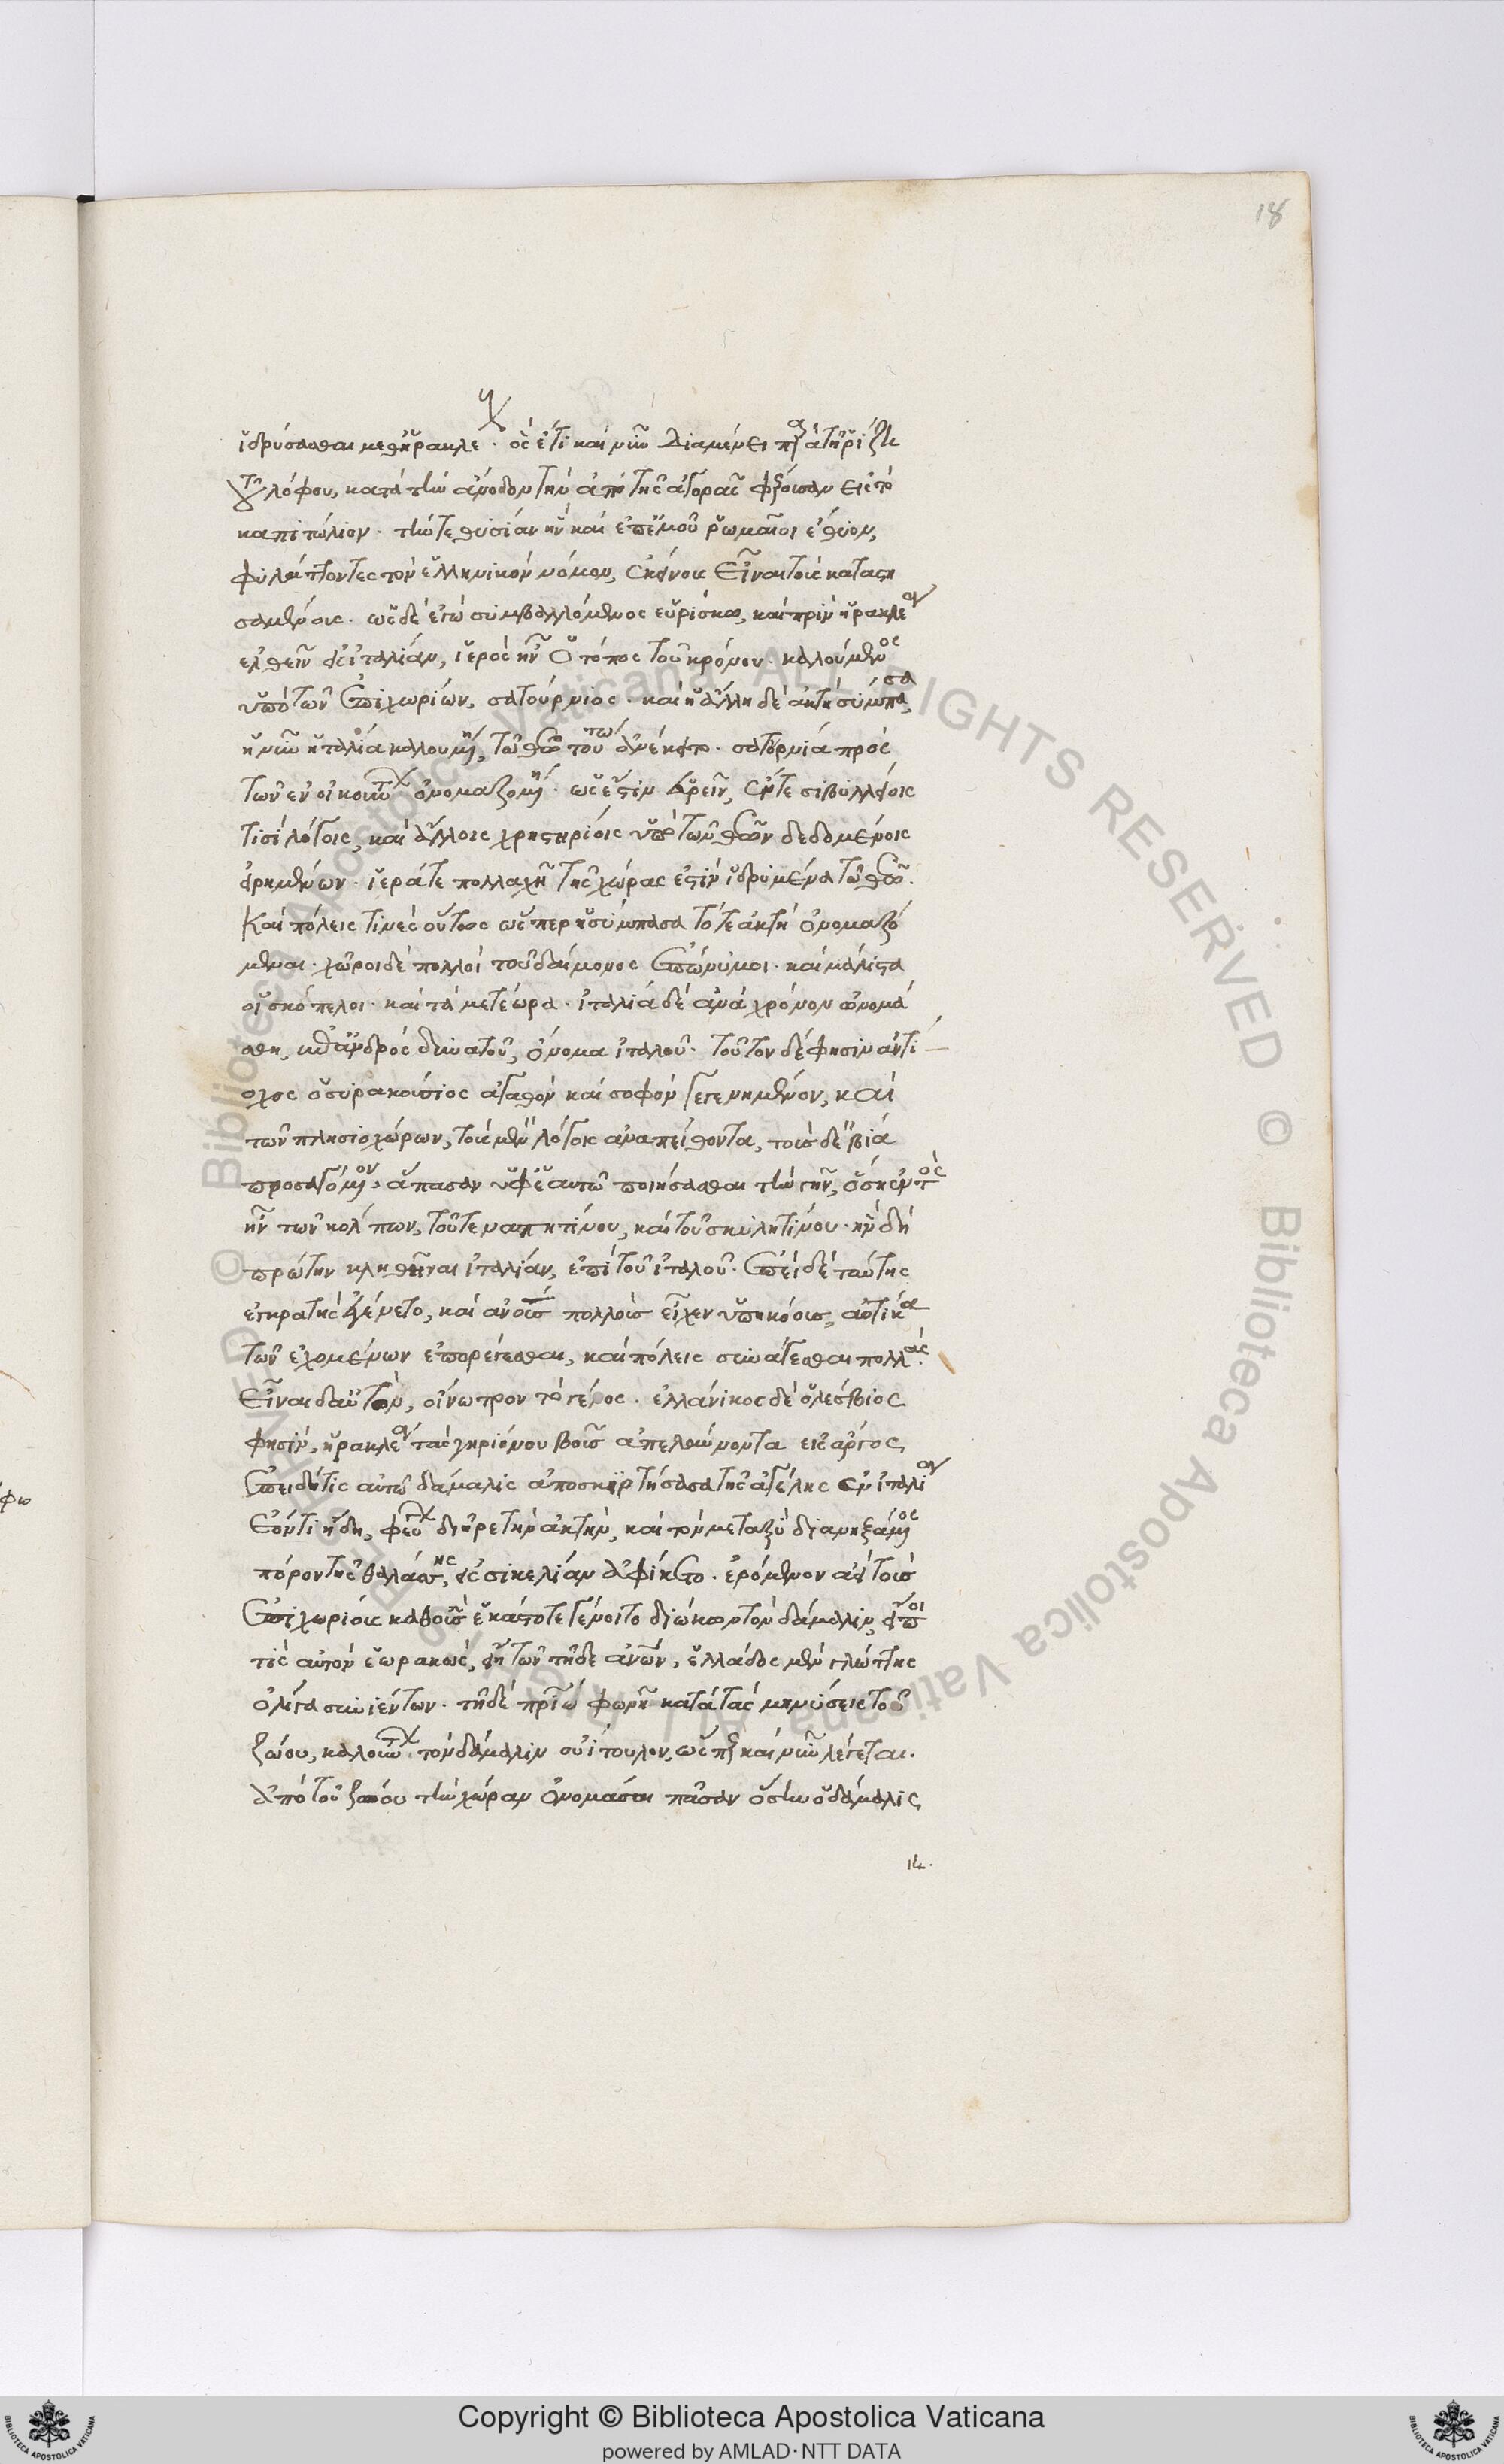 18
ἱδρύσασθαι μεθ' ἡρακλέους. ὃς ἔτι καὶ νῦν διαμένει παρὰ τῇ ῥίζῃ
τοῦ λόφου, κατὰ τὴν ἄνοδον τὴν ἀπὸ τῆς ἀγορᾶς φέρουσαν εἰς τὸ
καπιτώλιον. τήν τε θυσίαν ἣν καὶ ἐπ' ἐμοῦ ῥωμαῖοι ἔθυον,
φυλάττοντες τὸν ἑλληνικὸν νόμον, ἐκείνους εἶναι τοὺς καταστη
σαμένους. ὡς δὲ ἐγὼ συμβαλλόμενος εὑρίσκω, καὶ πρὶν ἡρακλέα
ἐλθεῖν εἰς ἰταλίαν, ἱερὸς ἦν ὁ τόπος τοῦ κρόνου. καλούμενος
ὑπὸ τῶν ἐπιχωρίων, σατούρνιος. καὶ ἡ ἄλλη δὲ ἀκτὴ σύμπασα
ἡ νῦν ἰταλία καλουμένη, τῷ θεῷ τούτῳ ἀνέκειτο. σατουρνία πρὸς
τῶν ἐνοικούντων ὀνομαζομένη. ὡς ἔστιν εὑρεῖν, ἔν τε σιβυλλείοις
τισὶ λόγοις, καὶ ἄλλοις χρηστηρίοις ὑπὸ τῶν θεῶν δεδομένοις
εἰρημένον. ἱερά τε πολλαχῇ τῆς χώρας ἐστὶν ἱδρυμένα τῷ θεῷ.
καὶ πόλεις τινὲς οὕτως ὥσπερ ἡ σύμπασα τότε ἀκτὴ ὀνομαζό
μεναι. χῶροί δὲ πολλοὶ τοῦ δαίμονος ἐπώνυμοι. καὶ μάλιστα
οἱ σκόπελοι. καὶ τὰ μετέωρα. ἰταλία δὲ ἀνὰ χρόνον ὠνομά
σθη, ἐπ' ἀνδρὸς δυνατοῦ, ὄνομα ἰταλοῦ. τοῦτον δέ φησιν ἀντί
οχος ὁ συρακούσιος ἀγαθὸν καὶ σοφὸν γεγενημένον, καὶ
τῶν πλησιοχώρων, τοὺς μὲν λόγοις ἀναπείθοντα, τοὺς δὲ βίᾳ
προσαγόμενον, ἅπασαν ὑφ' ἑαυτῷ ποιήσασθαι τὴν γῆν, ὅση ἐντὸς
ἦν τῶν κόλπων, τοῦ τε ναπητίνου, καὶ τοῦ σκυλητίνου. ἣν δὴ
πρώτην κληθῆναι ἰταλίαν, ἐπὶ τοῦ ἰταλοῦ. ἐπεὶ δὲ ταύτης
ἐγκρατὴς ἐγένετο, καὶ ἀνους πολλοὺς εἶχεν ὑπηκόους, αὐτίκα
τῶν ἐχομένων ἐπορέγεσθαι, καὶ πόλεις συνάγεσθαι πολλάς.
εἶναι δ' αὐτὸν, οἴνωτρον τὸ γένος. ἑλλάνικος δὲ ὁ λέσβιος
φησὶν, ἡρακλέα τὰς γηριόνου βοῦς ἀπελαύνοντα εἰς ἄργος,
ἐπειδή τις αὐτῷ δάμαλις ἀποσκιρτήσασα τῆς ἀγέλης ἐν ἰταλίᾳ
ἐόντι ἤδη, φεύγων διῆρε τὴν ἀκτὴν, καὶ τὸν μεταξὺ διανηξάμενος
πόρον τῆς θαλάσσης, εἰς σικελίαν ἀφίκετο. ἐρόμενον ἀεὶ τοὺς
ἐπιχωρίους καθ' οὓς ἑκάστοτε γένοιτο διώκων τὸν δάμαλιν, εἴ ποι
τὶς αὐτὸν ἑωρακὼς, εἴη τῶν τῇδε ἀνῶν, ἑλλάδος μὲν γλώττης
ὀλίγα συνιέντων. τῇ δὲ πατρίῳ φωνῇ κατὰ τὰς μηνύσεις τοῦ
ζώου, καλούντων τὸν δάμαλιν οὐίτουλον, ὥσπερ καὶ νῦν λέγεται.
ἀπὸ τοῦ ζώου τὴν χώραν ὀνομάσαι πᾶσαν ὅσην ὁ δάμαλις
14.
Copyright © Biblioteca Apostolica Vaticana
powered by AMLAD·NTT DATA